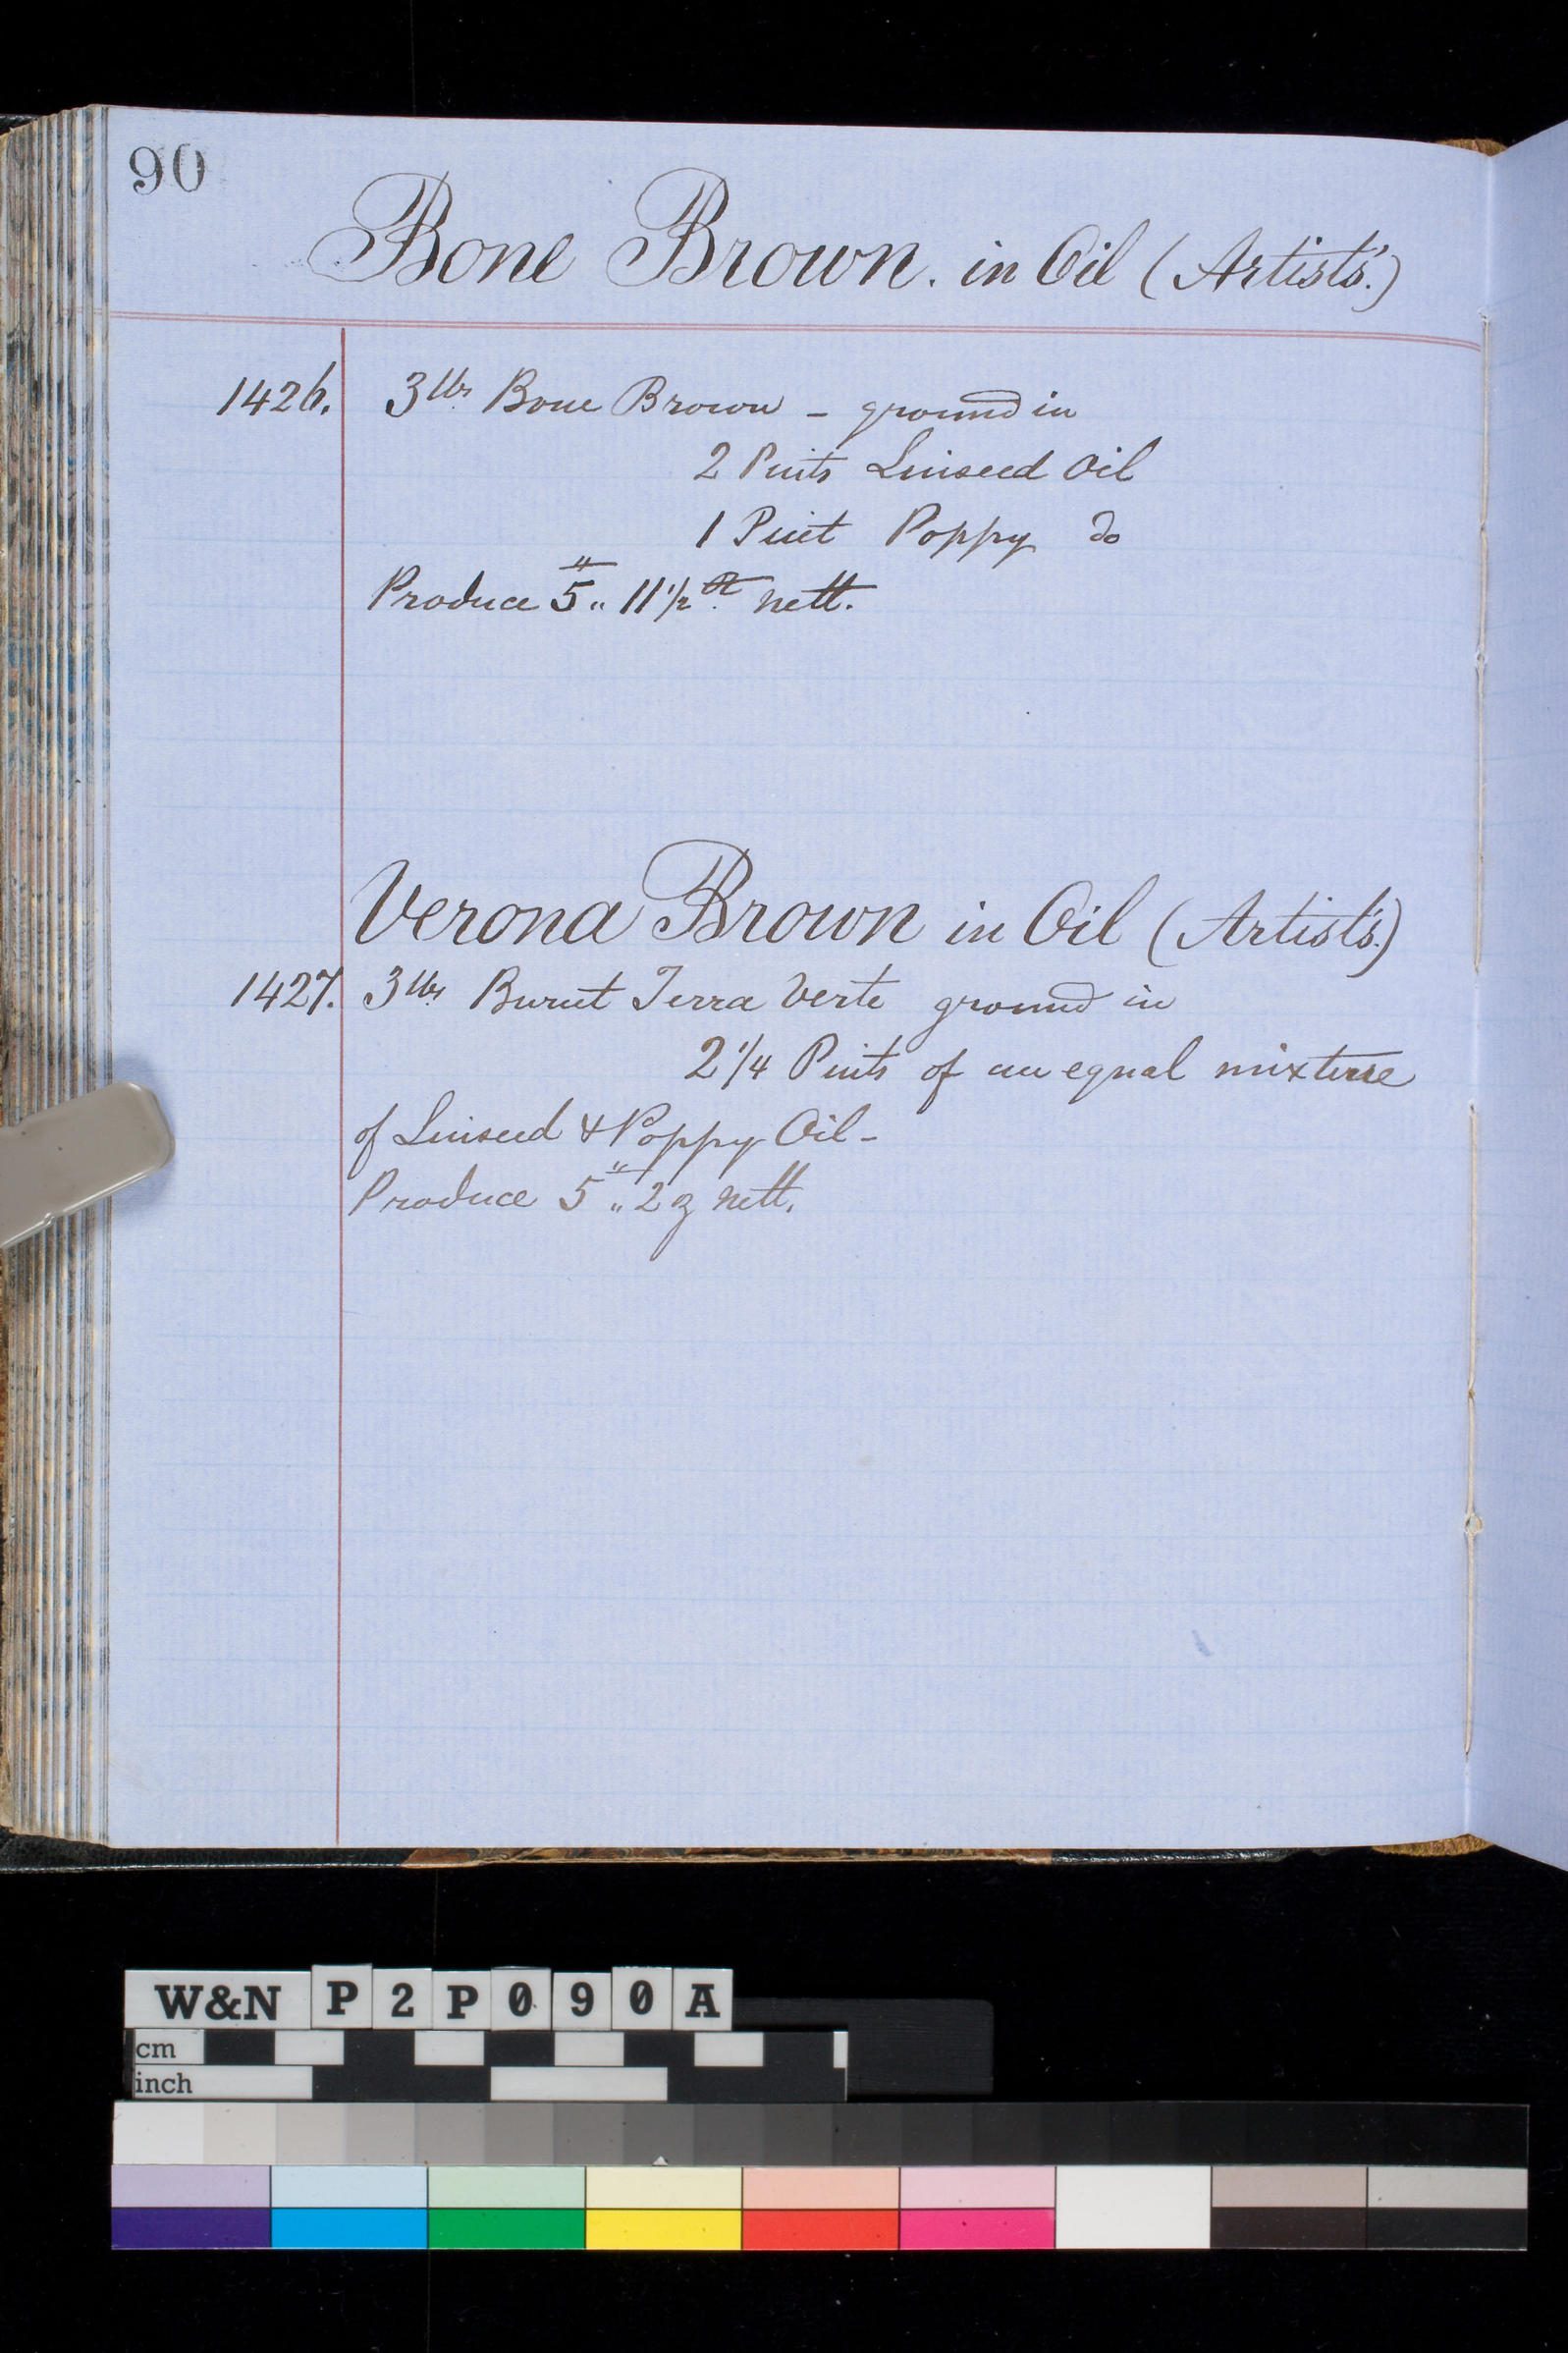 90
Bone Brown. in Oil (Artists'.)
1426. 3lbs Bone Brown - ground in
2 Pints Linseed Oil
1 Pint Poppy do
Produce 5 lb.. 11 1/2 oz nett.
Verona Brown in Oil (Artists'.)
1427. 3lbs Burnt Terra Verte ground in
2 1/4 Pints of an equal mixture
of Linseed & Poppy Oil -
Produce 5 lb.. 2 oz nett.
W&N P2P090A
cm
inch